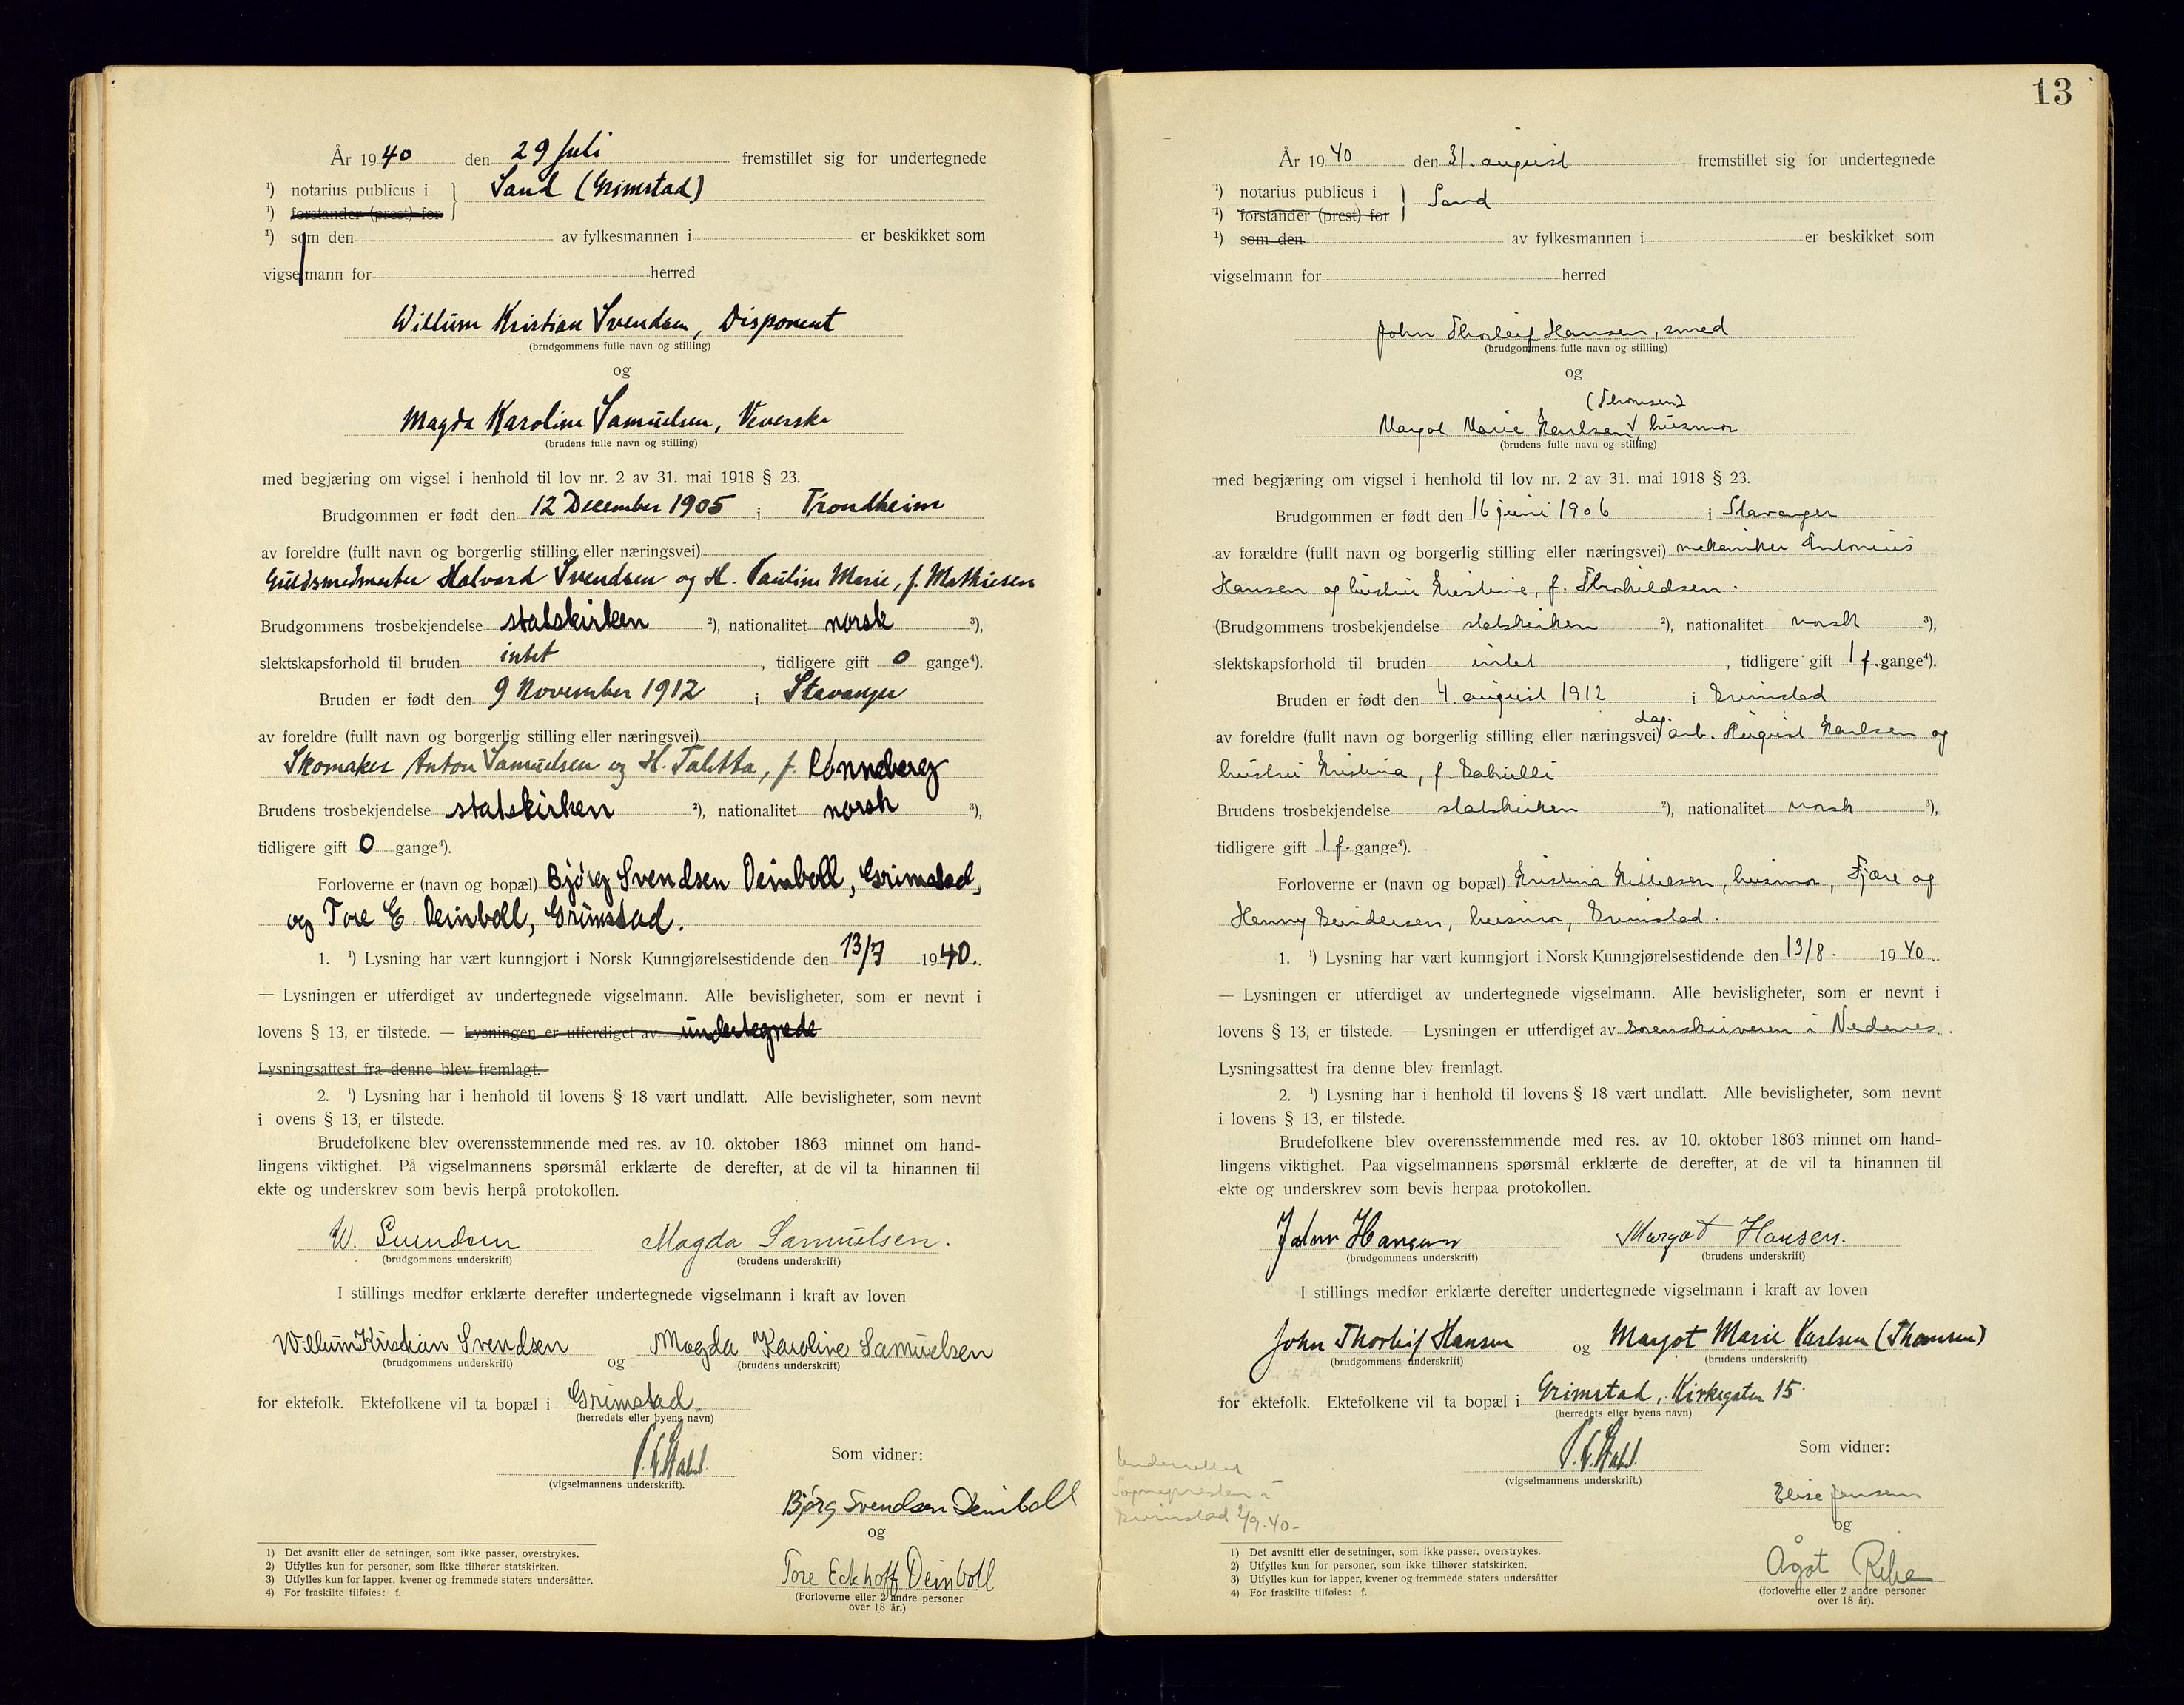 År 1940 den 29 Juli fremstillet sig for undertegnede
¹) notarius publicus i } Sand (Grimstad)
¹) forstander (prest) for
¹) som den av fylkesmannen i er beskikket som
vigselmann for herred
Willum Kristian Svendsen, Disponent
(brudgommens fulle navn og stilling)
og
Magda Karoline Samuelsen, Veverske
(brudens fulle navn og stilling)
med begjæring om vigsel i henhold til lov nr. 2 av 31. mai 1918 § 23.
Brudgommen er født den 12 December 1905 i Trondheim
av foreldre (fullt navn og borgerlig stilling eller næringsvei)
Guldsmedmester Halvard Svendsen og H. Pauline Marie, f. Mathiesen
Brudgommens trosbekjendelse statskirken ²), nationalitet norsk ³),
slektskapsforhold til bruden intet, tidligere gift 0 gange⁴).
Bruden er født den 9 November 1912 i Stavanger
av foreldre (fullt navn og borgerlig stilling eller næringsvei)
Skomaker Anton Samuelsen og H. Taletta, f. Rønneberg
Brudens trosbekjendelse statskirken ²), nationalitet norsk ³),
tidligere gift 0 gange⁴).
Forloverne er (navn og bopæl) Bjørg Svendsen Deinboll, Grimstad,
og Tore E. Deinboll, Grimstad.
1. ¹) Lysning har vært kunngjort i Norsk Kunngjørelsestidende den 13/7 1940.
— Lysningen er utferdiget av undertegnede vigselmann. Alle bevisligheter, som er nevnt i
lovens § 13, er tilstede. — Lysningen er utferdiget av undertegnede
Lysningsattest fra denne blev fremlagt.
2. ¹) Lysning har i henhold til lovens § 18 vært undlatt. Alle bevisligheter, som nevnt
i ovens § 13, er tilstede.
Brudefolkene blev overensstemmende med res. av 10. oktober 1863 minnet om hand-
lingens viktighet. På vigselmannens spørsmål erklærte de derefter, at de vil ta hinannen til
ekte og underskrev som bevis herpå protokollen.
W. Svendsen Magda Samuelsen.
(brudgommens underskrift) (brudens underskrift)
I stillings medfør erklærte derefter undertegnede vigselmann i kraft av loven
Willum Kristian Svendsen og Magda Karoline Samuelsen
(brudgommens underskrift) (brudens underskrift)
for ektefolk. Ektefolkene vil ta bopæl i Grimstad.
(herredets eller byens navn)
(vigselmannens underskrift).
Som vidner:
Bjørg Svendsen Deinboll
og
Tore Eckhoff Deinboll
(Forloverne eller 2 andre personer
over 18 år.)
1) Det avsnitt eller de setninger, som ikke passer, overstrykes.
2) Utfylles kun for personer, som ikke tilhører statskirken.
3) Utfylles kun for lapper, kvener og fremmede staters undersåtter.
4) For fraskilte tilføies: f.
13
År 1940 den 31. august fremstillet sig for undertegnede
¹) notarius publicus i } Sand
¹) forstander (prest) for
¹) som den av fylkesmannen i er beskikket som
vigselmann for herred
John Thorleif Hansen, smed
(brudgommens fulle navn og stilling)
og
(Thomsen)
Margot Marie Karlsen, husmor
(brudens fulle navn og stilling)
med begjæring om vigsel i henhold til lov nr. 2 av 31. mai 1918 § 23.
Brudgommen er født den 16 juni 1906 i Stavanger
av forældre (fullt navn og borgerlig stilling eller næringsvei) mekaniker Antonius
Hansen og hustru Kristine, f. Thorkildsen.
(Brudgommens trosbekjendelse statskirken ²), nationalitet norsk ³),
slektskapsforhold til bruden intet, tidligere gift 1 f. gange⁴).
Bruden er født den 4. august 1912 i Grimstad
av foreldre (fullt navn og borgerlig stilling eller næringsvei) dag. arb. August Karlsen og
hustru Kristina, f.
Brudens trosbekjendelse statskirken ²), nationalitet norsk ³),
tidligere gift 1 f. gange⁴).
Forloverne er (navn og bopæl) Kristina, husmor, Fjære og
Henny Gundersen, husmor, Grimstad.
1. ¹) Lysning har vært kunngjort i Norsk Kunngjørelsestidende den 13/8. 1940..
— Lysningen er utferdiget av undertegnede vigselmann. Alle bevisligheter, som er nevnt i
lovens § 13, er tilstede. — Lysningen er utferdiget av sorenskriveren i Nedenes.
Lysningsattest fra denne blev fremlagt.
2. ¹) Lysning har i henhold til lovens § 18 vært undlatt. Alle bevisligheter, som nevnt
i lovens § 13, er tilstede.
Brudefolkene blev overensstemmende med res. av 10. oktober 1863 minnet om hand-
lingens viktighet. Paa vigselmannens spørsmål erklærte de derefter, at de vil ta hinannen til
ekte og underskrev som bevis herpaa protokollen.
John Hansen Margot Hansen.
(brudgommens underskrift) (brudens underskrift)
I stillings medfør erklærte derefter undertegnede vigselmann i kraft av loven
John Thorleif Hansen og Margot Marie Karlsen (Thomsen)
(brudgommens underskrift) (brudens underskrift)
for ektefolk. Ektefolkene vil ta bopæl i Grimstad, Kirkegaten 15.
(herredets eller byens navn)
(vigselmannens underskrift.)
Som vidner:
Elise Jensen
og
Ågot Ribe
(forloverne eller 2 andre personer
over 18 år).
Underrettet
Sognepresten i
Grimstad 2/9.40.
1) Det avsnitt eller de setninger, som ikke passer, overstrykes.
2) Utfylles kun for personer, som ikke tilhører statskirken.
3) Utfylles kun for lapper, kvener og fremmede staters undersåtter
4) For fraskilte tilføies: f.